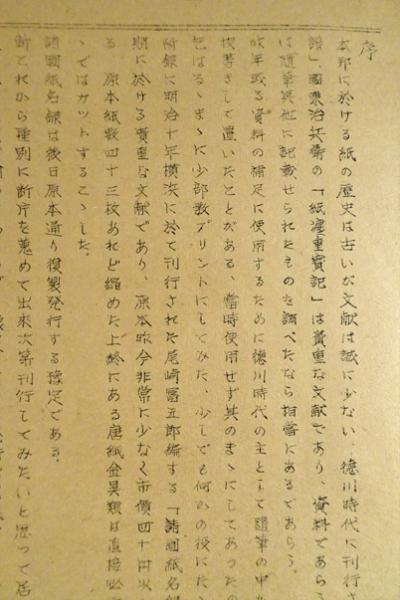 序
本邦に於ける紙の歴史は古いが文献は誠に少ない、徳川時代に刊行さ
譜」國東治兵衞の「紙漉重寳記」は貴重な文献であり、資料であらう
は随筆其他に記載せられたものを調べたなら相當にあるであらう。
昨年或る資料の補足に使用するために徳川時代の主として随筆の中か
抜書きして置いたことがある、當時使用せず其のまゝにしてあったの
はるゝまゝに少部数プリントにしてみた、少しでも何かの役にたゝ
附録に明治十年横浜に於て刊行された尾崎富五郎編する「諸国紙名録
期に於ける貴重な文献であり、原本昨今非常に少なく市價四十円以
る 原本紙数四十三枚あれど縮めた上終にある唐紙金具類は直接必
ゝではカットするこゝした。
諸國紙名録は後日原本通り複製発行する豫定である。
断これから種別に断片を蒐めて出来次第刊行してみたいと思って居